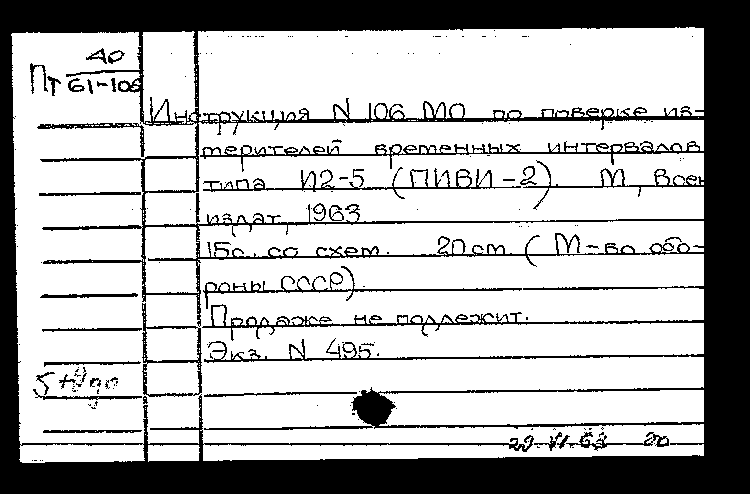 40
Пт 61-106
Инструкция N 106 МО по поверке из-
мерителей временных интервалов
типа И2-5 (ПИВИ-2). М, Воен
издат, 1963
15с. со схем. 20 см (М-во обо-
роны СССР).
Продаже не подлежит.
Экз. N 495.
29.VI.63